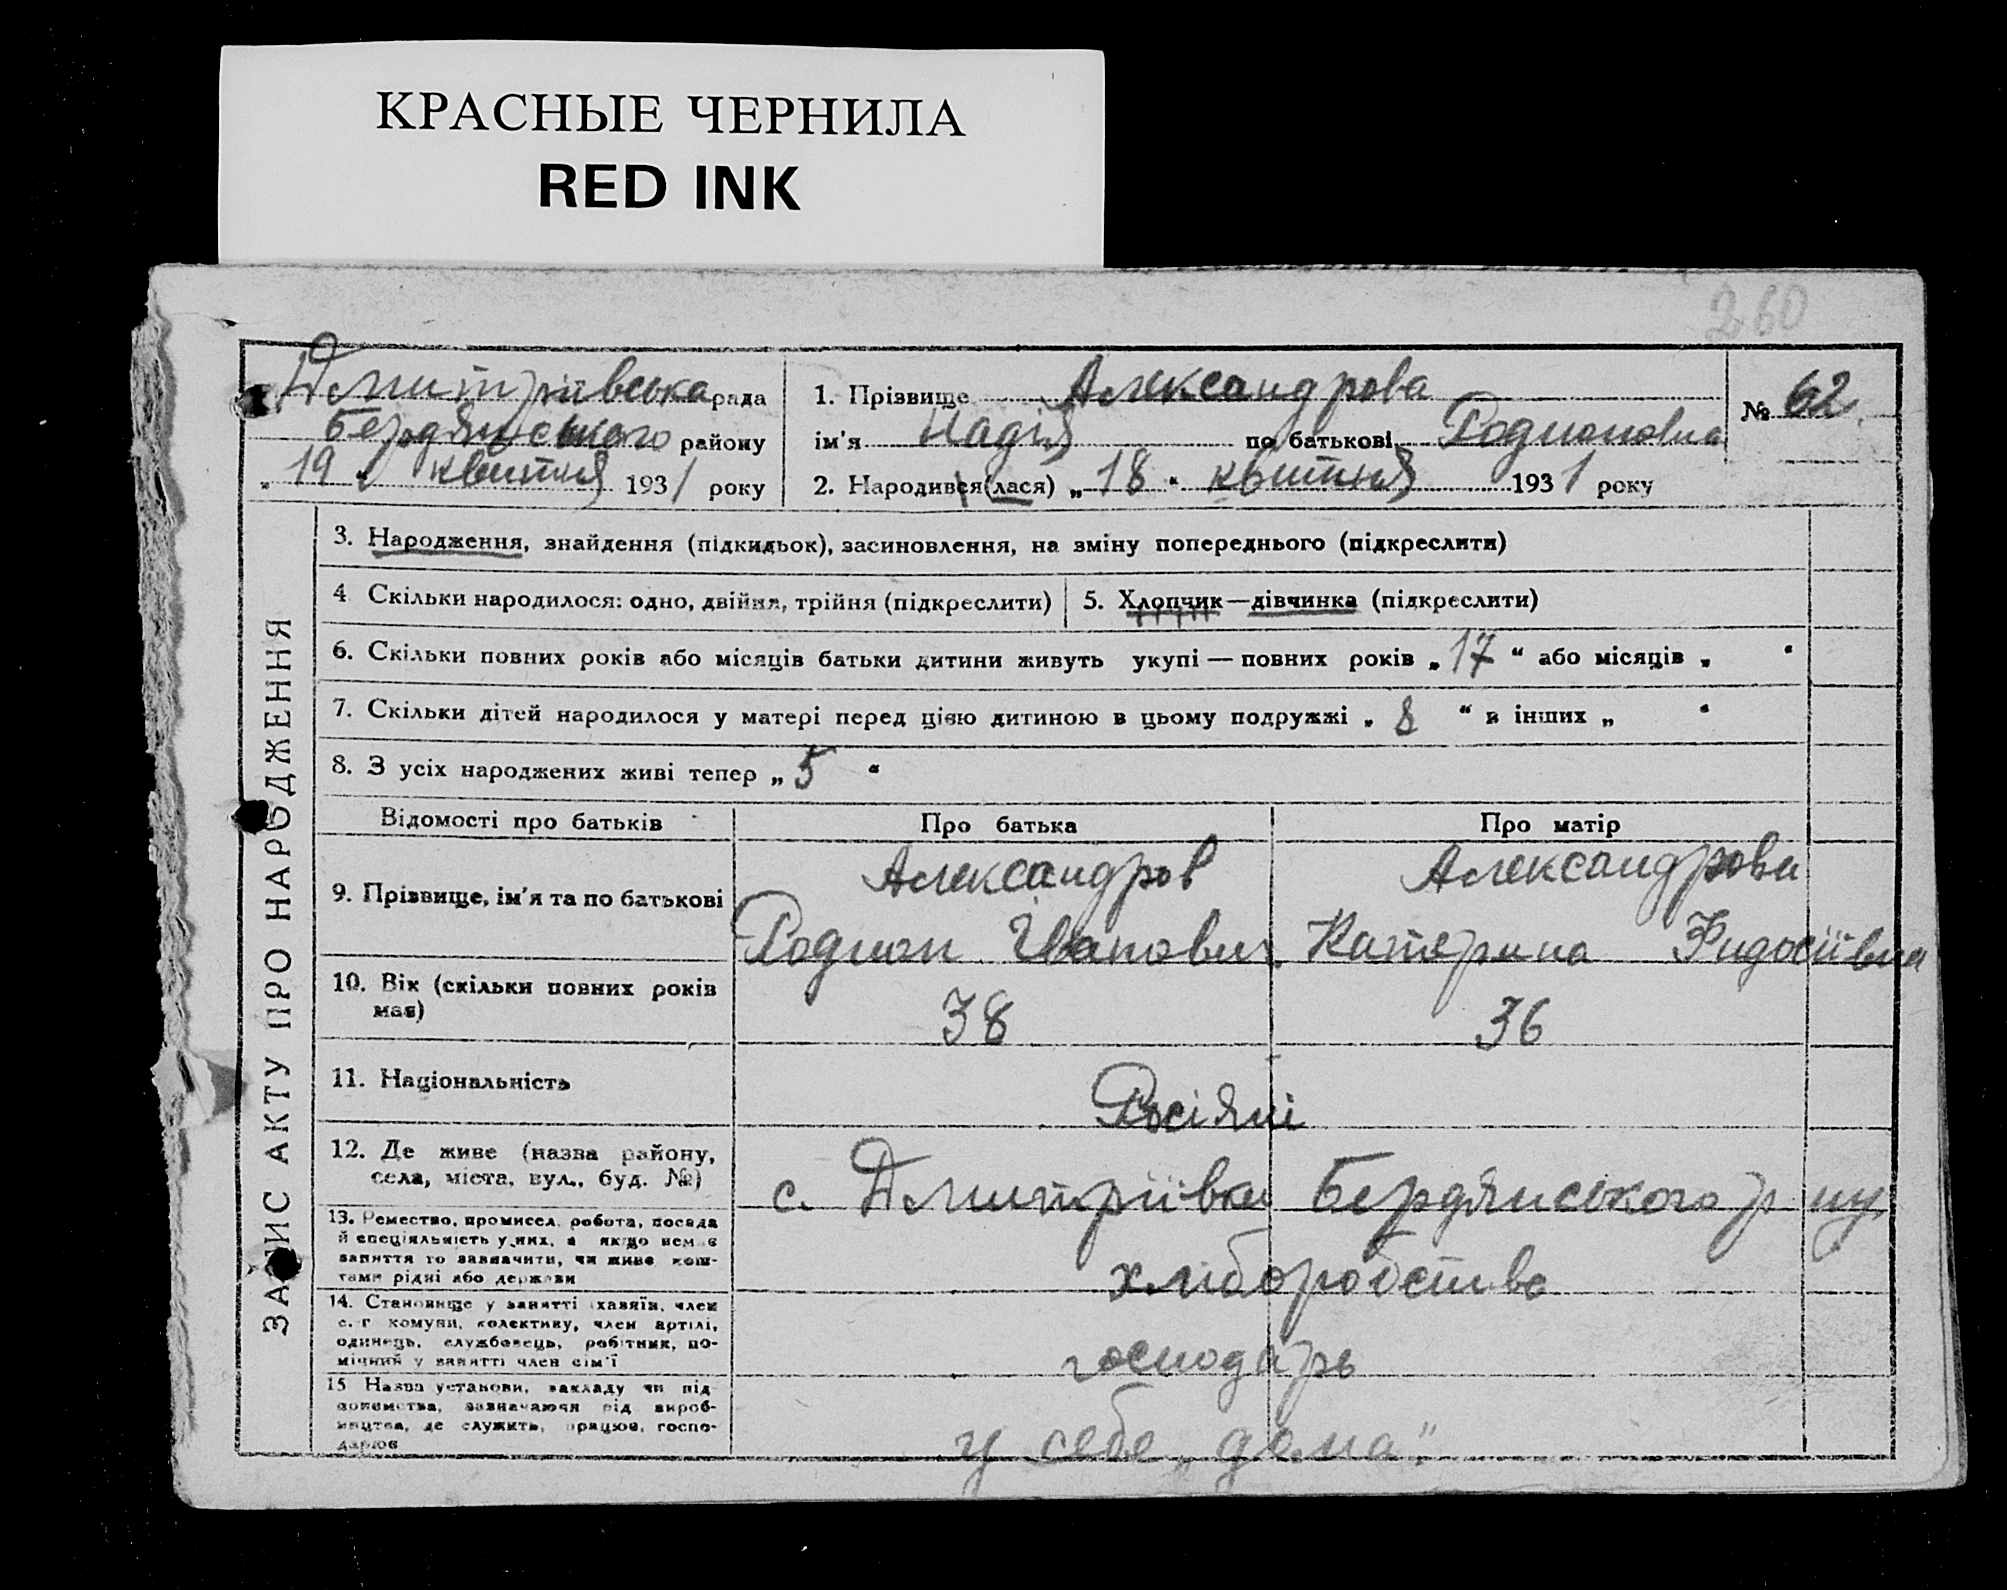 КРАСНЫЕ ЧЕРНИЛА
RED INK
260
ЗАПИС АКТУ ПРО НАРОДЖЕННЯ
Дмитріївська рада
Бердянського району
„ 19 " квитня 1931 року
1. Прізвище Александрова
ім'я Надія по батькові Родионовна
№ 62
2. Народився(лася) „ 18 " квитня 1931 року
3. Народження, знайдення (підкидьок), засиновлення, на зміну попереднього (підкреслити)
4 Скільки народилося: одно, двійня, трійня (підкреслити)
5. Хлопчик—дівчинка (підкреслити)
6. Скільки повних років або місяців батьки дитини живуть укупі — повних років „ 17 " або місяців „ "
7. Скільки дітей народилося у матері перед цією дитиною в цьому подружжі „ 8 " в інших „ "
8. З усіх народжених живі тепер „ 5 "
Відомості про батьків
Про батька
Про матір
9. Прізвище, ім'я та по батькові
Александров
Родион Іванович
Александрова
Катерина Фидосіївна
10. Вік (скільки повних років
має)
38
36
11. Національність
Росіяні
12. Де живе (назва району,
села, міста, вул., буд. №)
с. Дмитріївка Бердянського р-ну
13. Ремество, промисел, робота, посада
й спеціяльність у них, а якщо немає
заняття то зазначити, чи живе кош-
тами рідні або держави
хліборобство
14. Становище у занятті (хазяїн, член
с.-г комуни, колективу, член артілі,
одинець, службовець, робітник, по-
мічний у занятті член сім'ї
господарь
15 Назва установи, закладу чи під-
приємства, зазначаючи рід вироб-
ництва, де служить, працює, госпо-
дарює
у себе „дома"